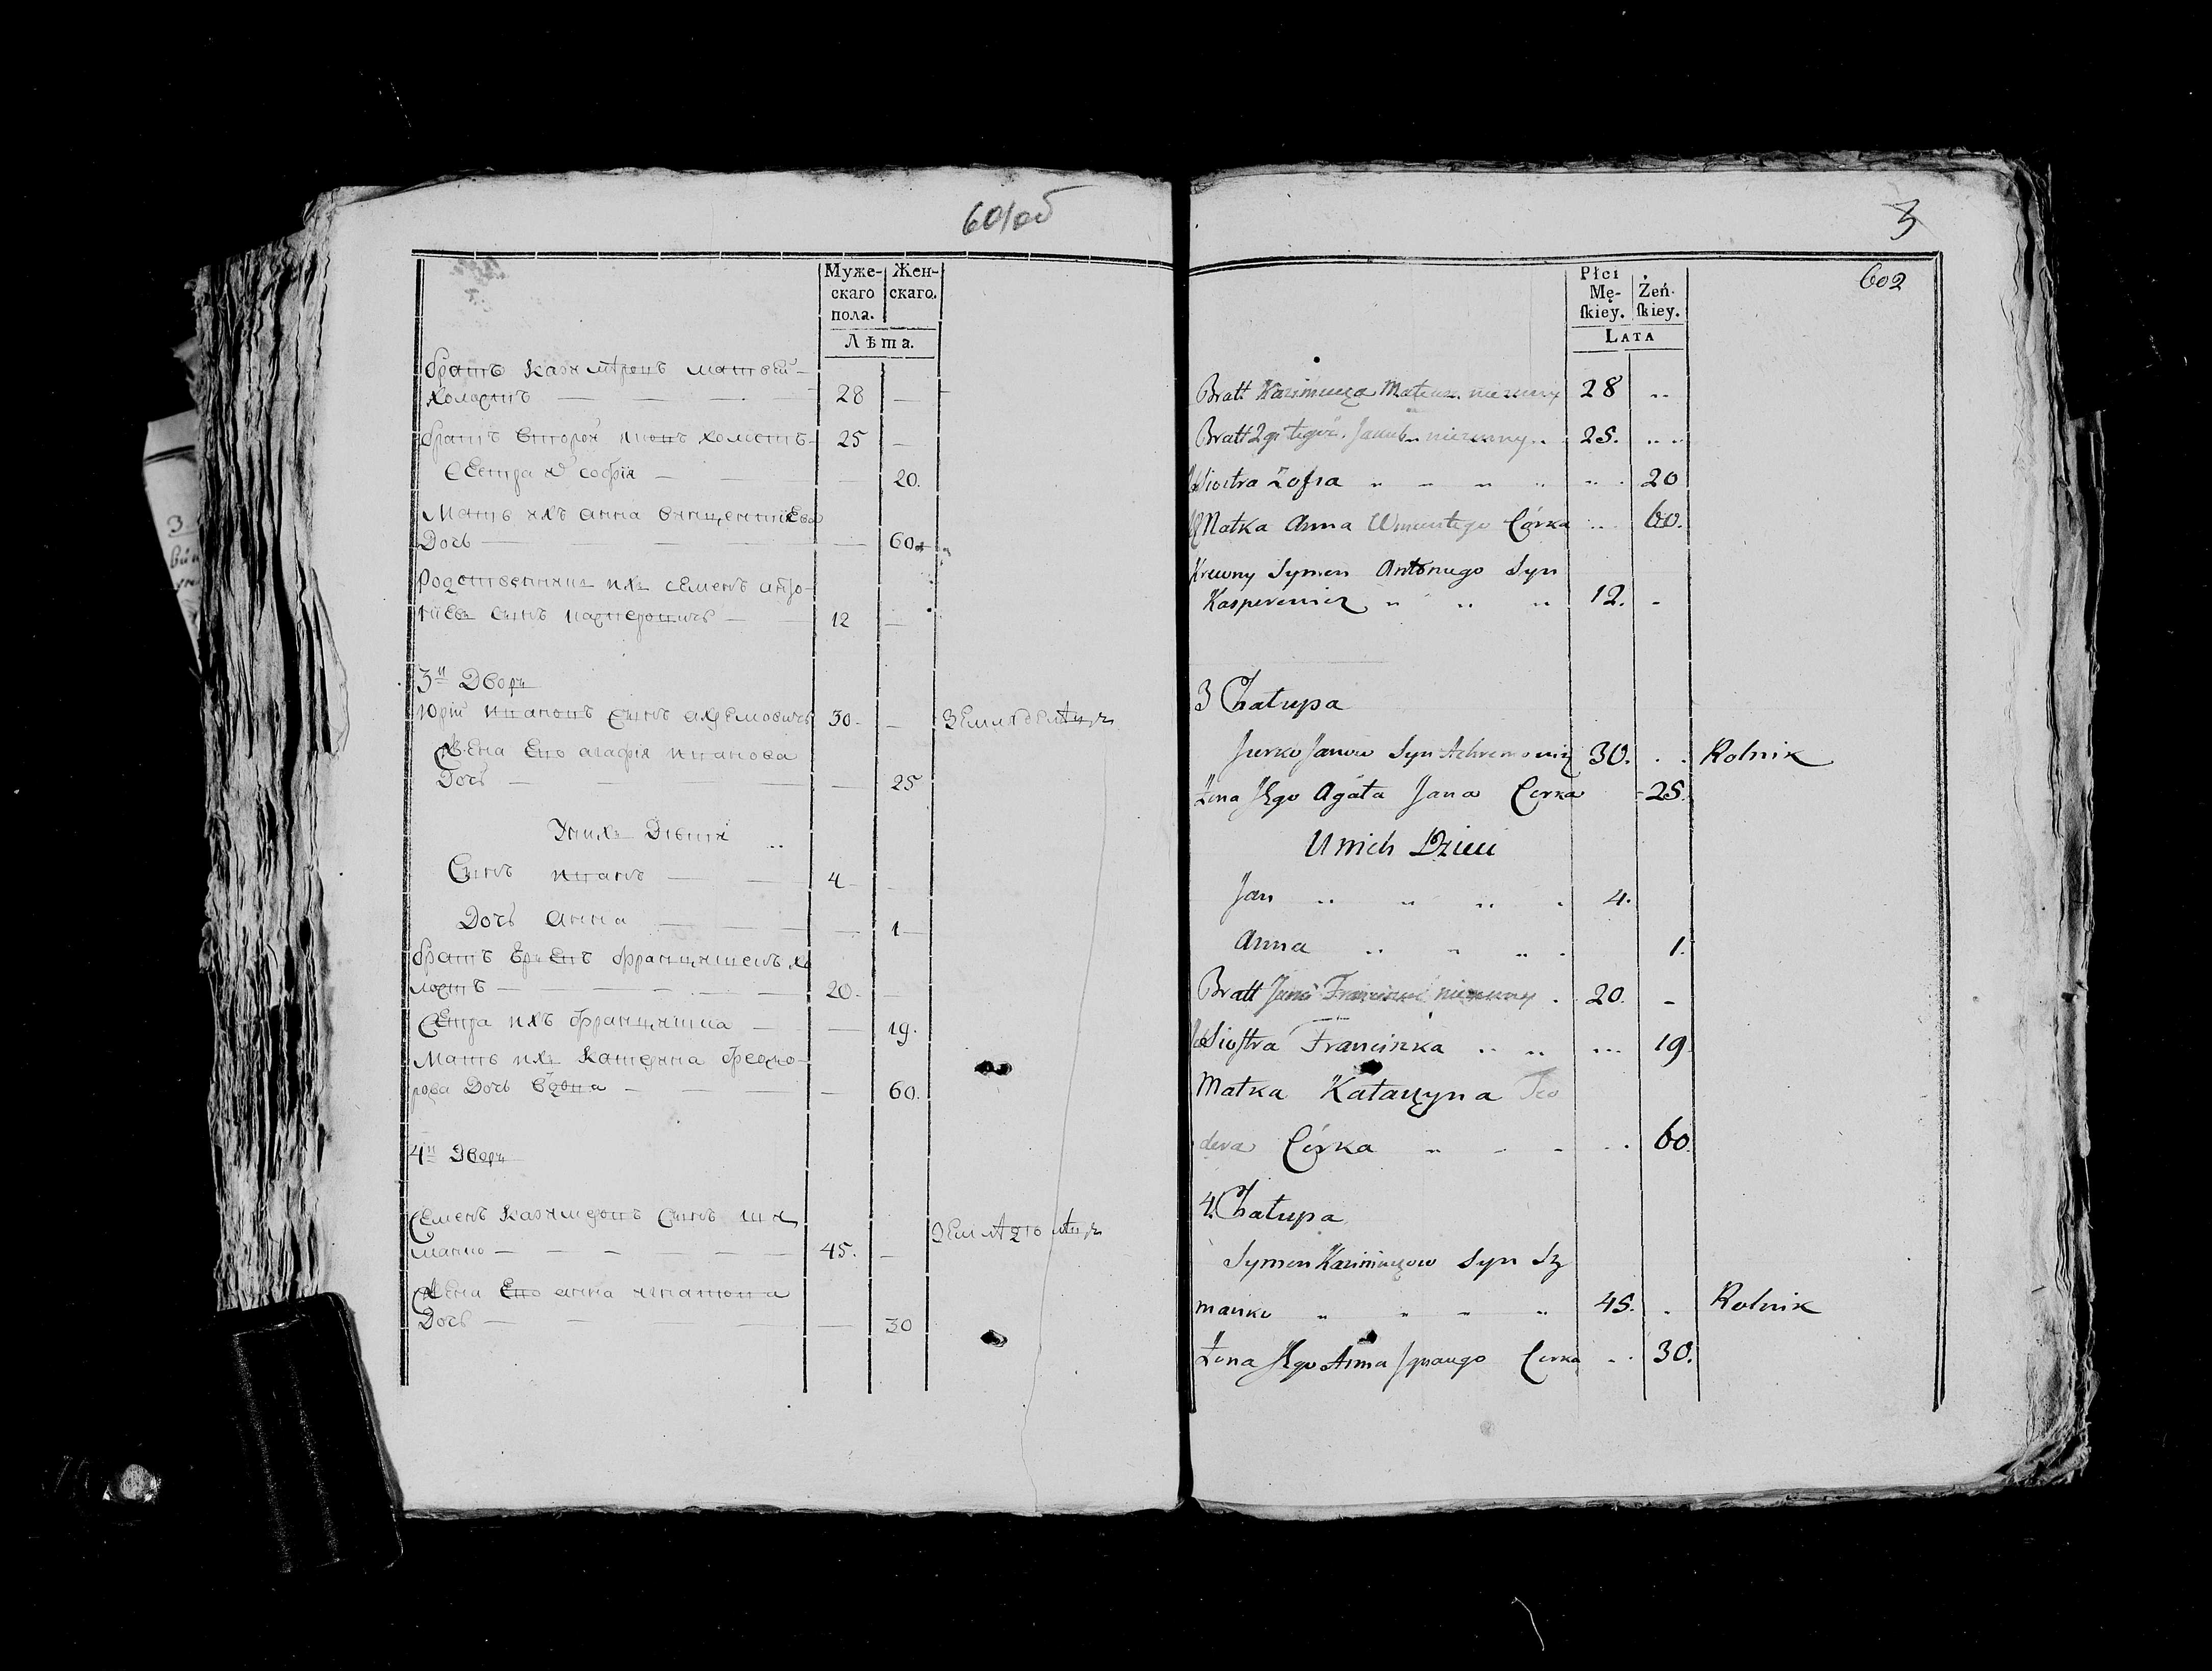 601об
Муже- Жен-
скаго скаго.
пола.
Лѣта.
братъ казимѣровъ матвѣй
холостъ — — — — 28 —
братъ второй холостъ 25 —
сестра софія — — — 20.
мать ихъ анна винцентіева
Дочь — — — — 60
Родственникъ ихъ семенъ анто-
ніевъ сынъ касперовичъ — — 12 —
3й Дворъ
Юрій ивановъ сынъ ахремовичъ 30. — земледелецъ
жена его агафія иванова
Дочь — — — — 25
У нихъ Дѣти
Сынъ иванъ — — 4 —
Дочь анна — — — — 1
братъ францишекъ хо
лостъ — — — — 20. —
сестра ихъ францишка — — 19.
мать ихъ катерина федо-
рова Дочь вдова — — — — 60.
4й Дворъ
Семенъ казимеровъ сынъ ши
манко — — — — 45. —
жена его анна игнатова
Дочь — — — — 30
3
602
Płci
Mę- Żeń-
ſkiey. ſkiey.
Lata
Bratt Kazimierza Mateusz niezenny 28 ..
Bratt 2gi tegoż Jakub niezenny .. 25. .. ..
Siostra Zofia „ „ „ „ 20
Matka Anna Wincentego Córka ... 60.
Krewny Symon Antoniego Syn
Kasperewicz „ „ „ 12. -
3 Chałupa
Jurko Janow Syn Achremowicz 30. . . Rolnik
Żona Jego Agata Jana Corka - 25.
U nich Dzieci
Jan „ „ „ . 4.
Anna „ „ „ . 1.
Bratt Franciszek niezenny . 20. -
Sioſtra Franciszka .. .. ... 19
Matka Katarzyna Teo
dora Córka „ - - - . 60.
4. Chałupa
Symon Kazimierzow Syn Sz
manko „ „ „ „ 45. . Rolnik
Żona Jego Anna Ignacego Corka .. 30.